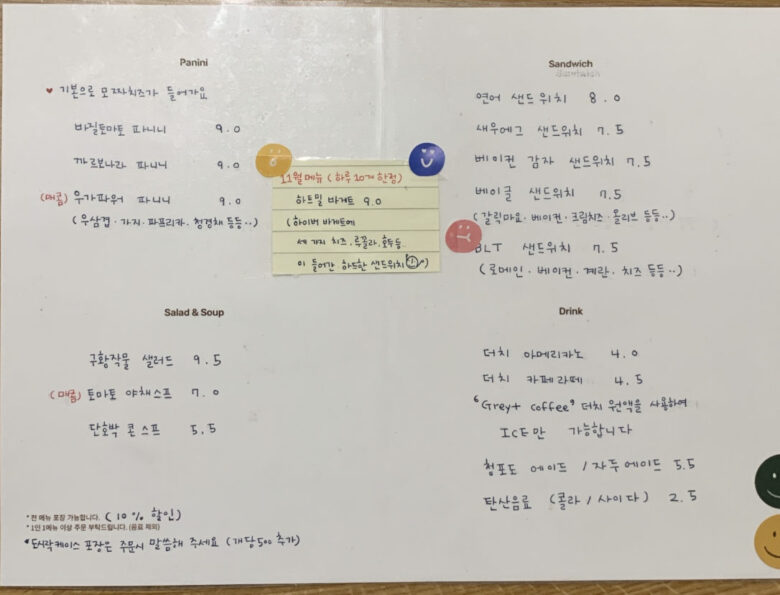 Panini
♥ 기본으로 모짜치즈가 들어가요
바질토마토 파니니 9.0
까르보나라 파니니 9.0
(매콤) 우가파워 파니니 9.0
(우삼겹·가지·파프리카·청경채 등등··)
11월메뉴 (하루 10개 한정)
하트밀 바게트 9.0
(하이버 바게트에
세 가지 치즈·루꼴라·호두등..
이 들어간 하트한 샌드위치)
Sandwich
연어 샌드위치 8.0
새우에그 샌드위치 7.5
베이컨 감자 샌드위치 7.5
베이글 샌드위치 7.5
(갈릭마요·베이컨·크림치즈·올리브 등등··)
BLT 샌드위치 7.5
(로메인·베이컨·계란·치즈 등등··)
Salad & Soup
구황작물 샐러드 9.5
(매콤) 토마토 야채스프 7.0
단호박 콘스프 5.5
Drink
더치 아메리카노 4.0
더치 카페라떼 4.5
‘Grey+ coffee’ 더치 원액을 사용하여
ICE만 가능합니다
청포도 에이드 / 자두에이드 5.5
탄산음료 (콜라 / 사이다) 2.5
* 전 메뉴 포장 가능합니다. (10% 할인)
* 1인 1메뉴 이상 주문 부탁드립니다. (음료 제외)
* 도시락케이스 포장은 주문시 말씀해 주세요 (개당 500 추가)